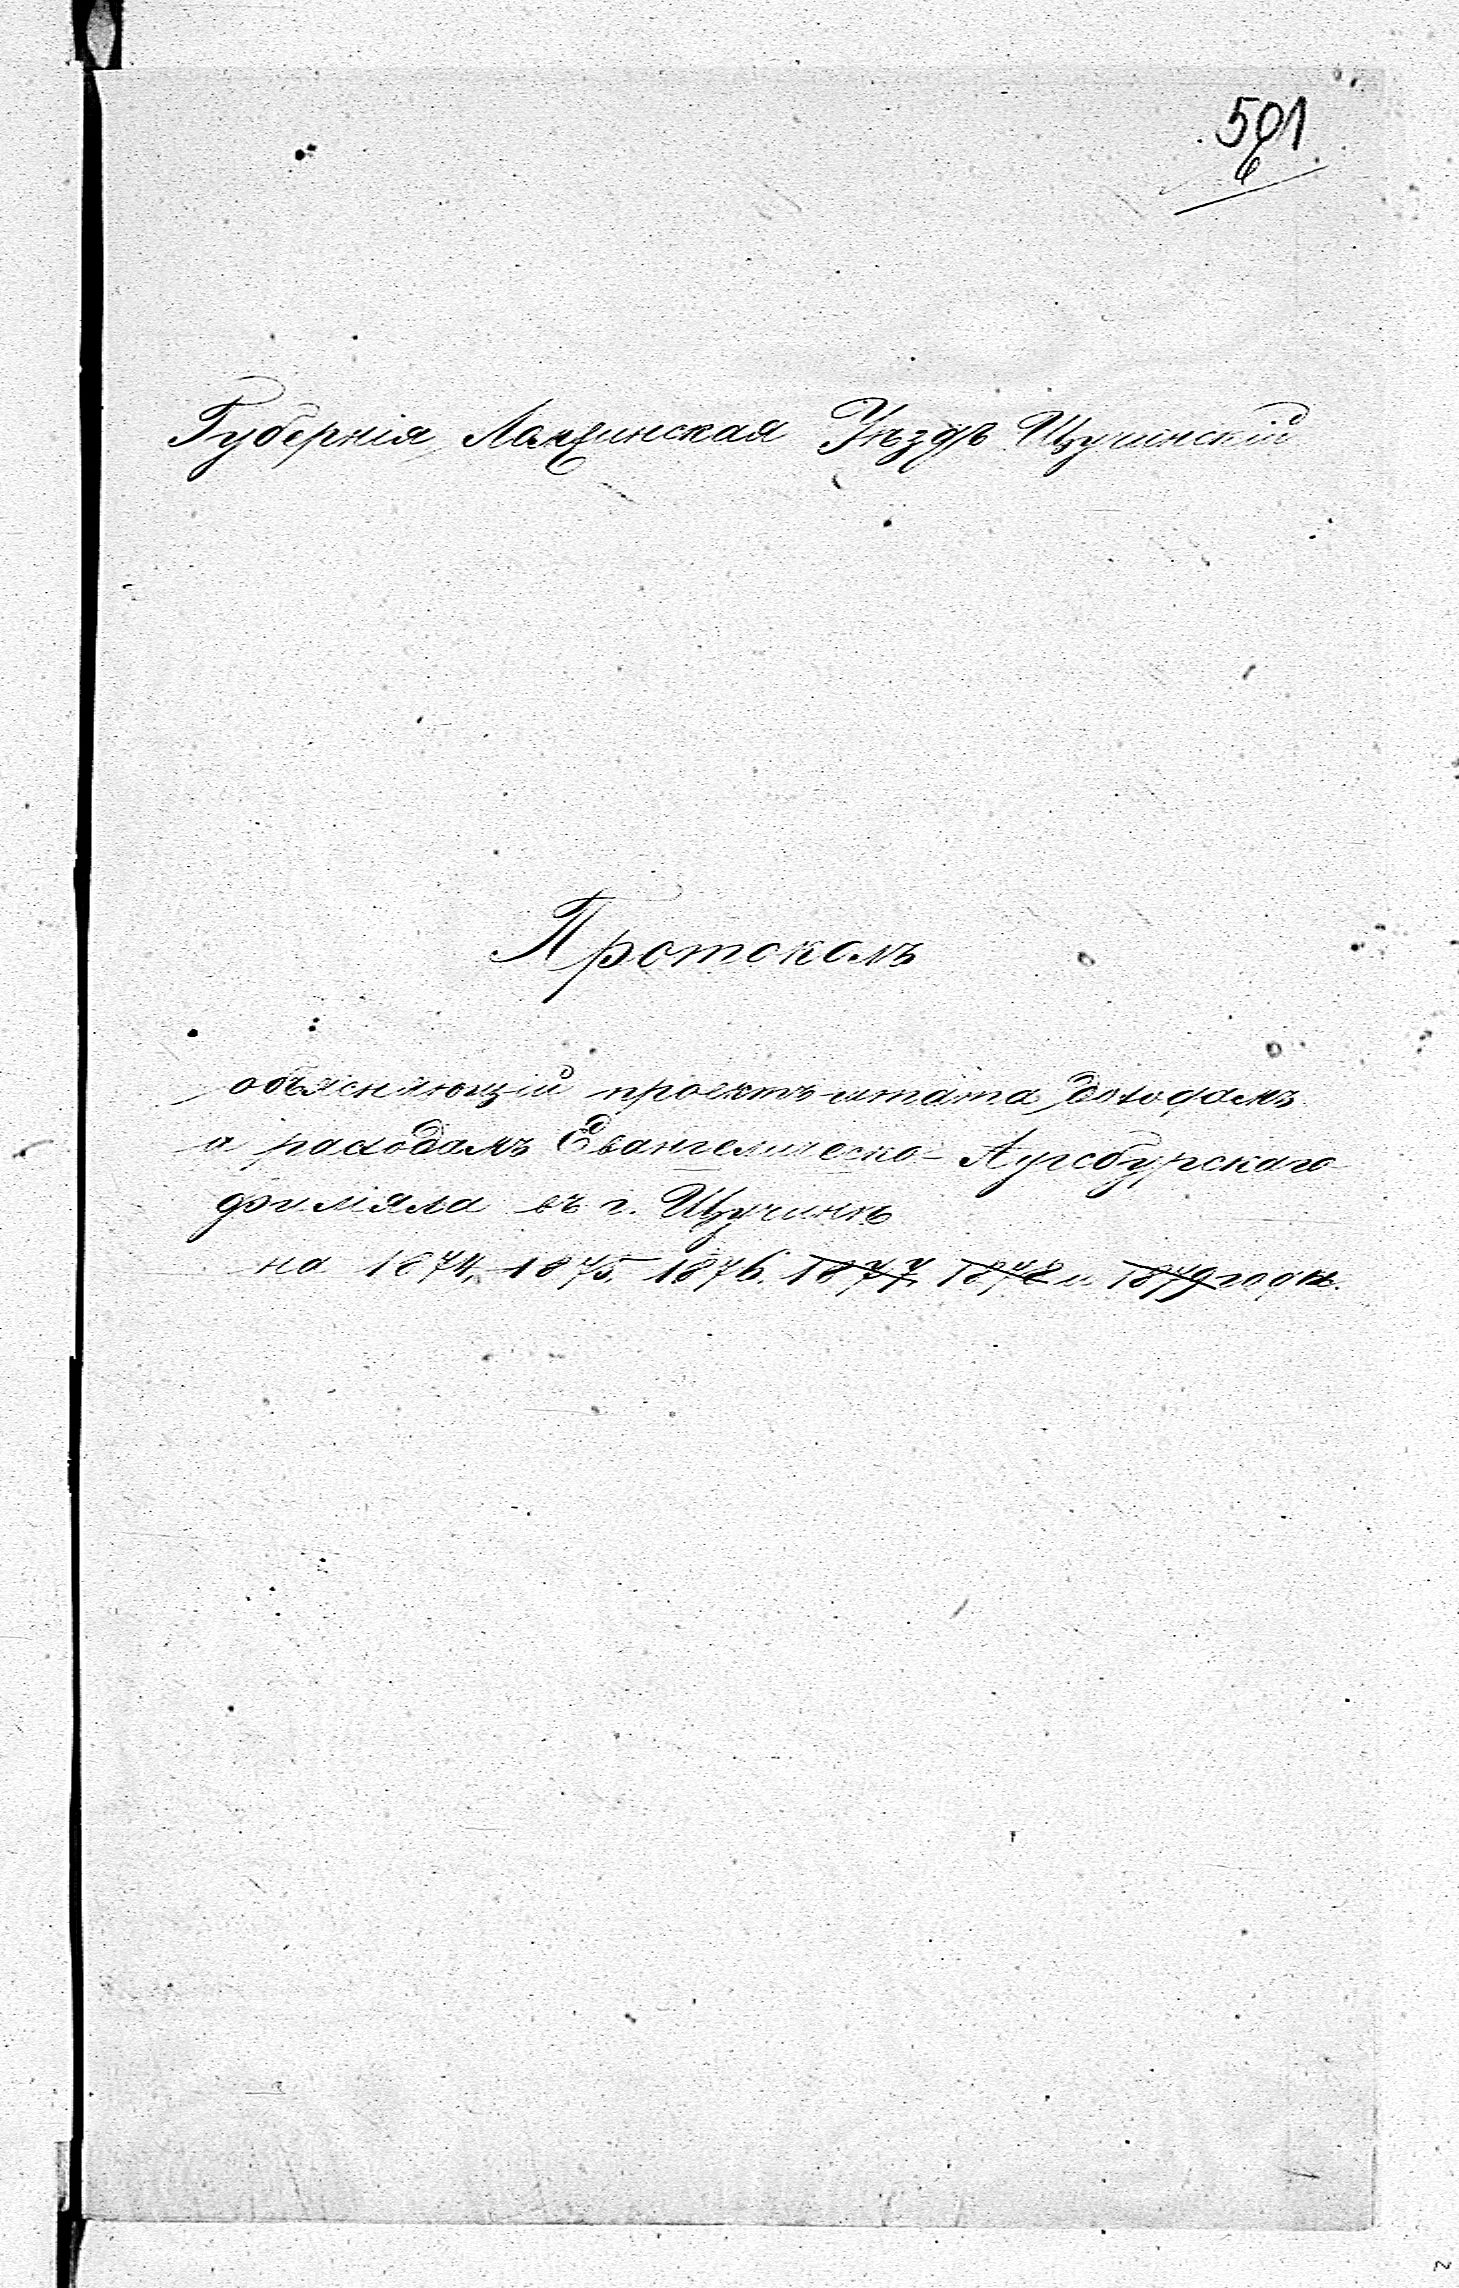 591
6
Губернія Ломжинская Уѣздъ Щучинскій
Протоколъ
объясняющій проектъ штата доходамъ
и расходамъ Евангелическо-Аугсбурскаго
филіяла въ г. Щучинѣ
на 1874, 1875, 1876. 1877, 1878 и 1879 годы.